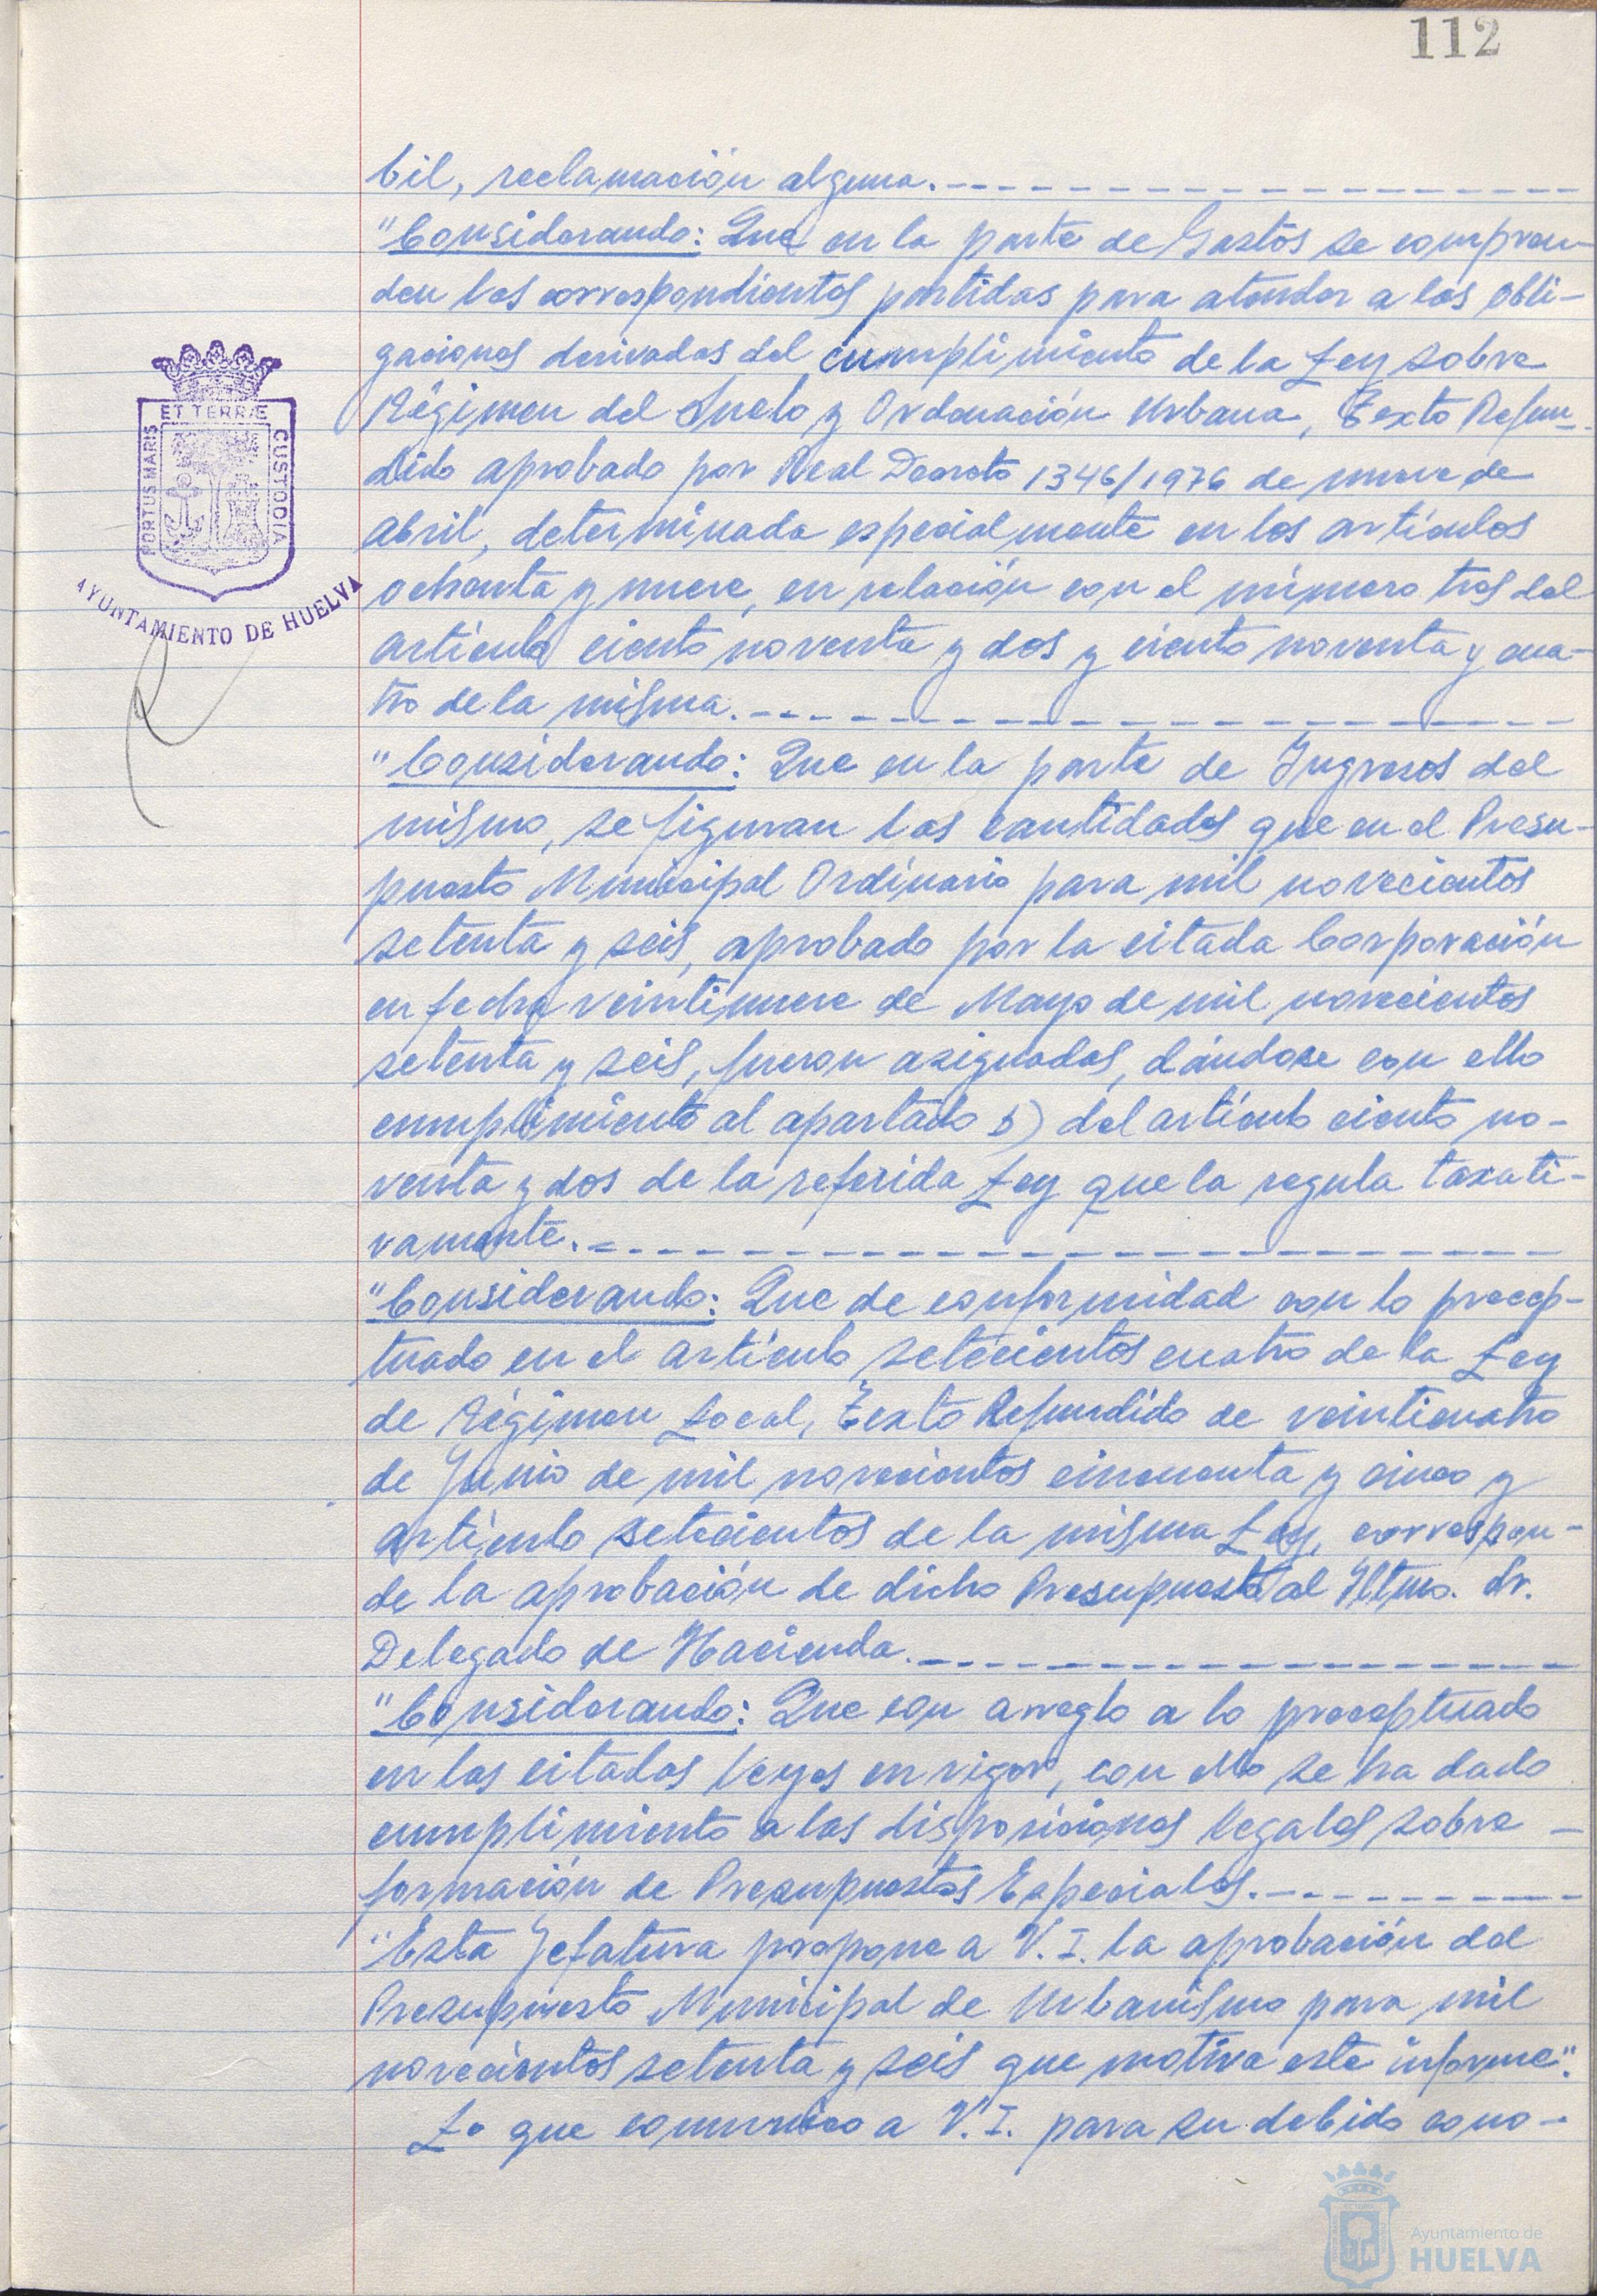 112
bil, reclamación alguna.
"Considerando: Que en la parte de Gastos se compren-
den las correspondientes partidas para atender a las obli-
gaciones derivadas del cumplimiento de la Ley sobre
Régimen del Suelo y Ordenación Urbana, Texto Refun-
dido aprobado por Real Decreto 1346/1976 de nueve de
Abril, determinada especialmente en los artículos
ochenta y nueve, en relación con el número tres del
artículo ciento noventa y dos y ciento noventa y cua-
tro de la misma.
"Considerando: Que en la parte de Ingresos del
mismo, se figuran las cantidades que en el Presu-
puesto Municipal Ordinario para mil novecientos
setenta y seis, aprobado por la citada Corporación
en fecha veintinueve de Mayo de mil novecientos
setenta y seis, fueron asignadas, dándose con ello
cumplimiento al apartado b) del artículo ciento no-
venta y dos de la referida Ley que la regula taxati-
vamente.
"Considerando: Que de conformidad con lo precep-
tuado en el artículo setecientos cuatro de la Ley
de Régimen Local, Texto Refundido de veinticuatro
de Junio de mil novecientos cincuenta y cinco y
artículo setecientos de la misma Ley, correspon-
de la aprobación de dicho Presupuesto al Iltmo. Sr.
Delegado de Hacienda.
"Considerando: Que con arreglo a lo preceptuado
en las citadas Leyes en vigor, con ello se ha dado
cumplimiento a las disposiciones legales sobre
formación de Presupuestos Especiales.
"Esta Jefatura propone a V.I. la aprobación del
Presupuesto Municipal de Urbanismo para mil
novecientos setenta y seis que motiva este informe".
Lo que comunico a V.I. para su debido cono-
PORTUS MARIS ET TERRÆ CUSTODIA
AYUNTAMIENTO DE HUELVA
Ayuntamiento de
HUELVA